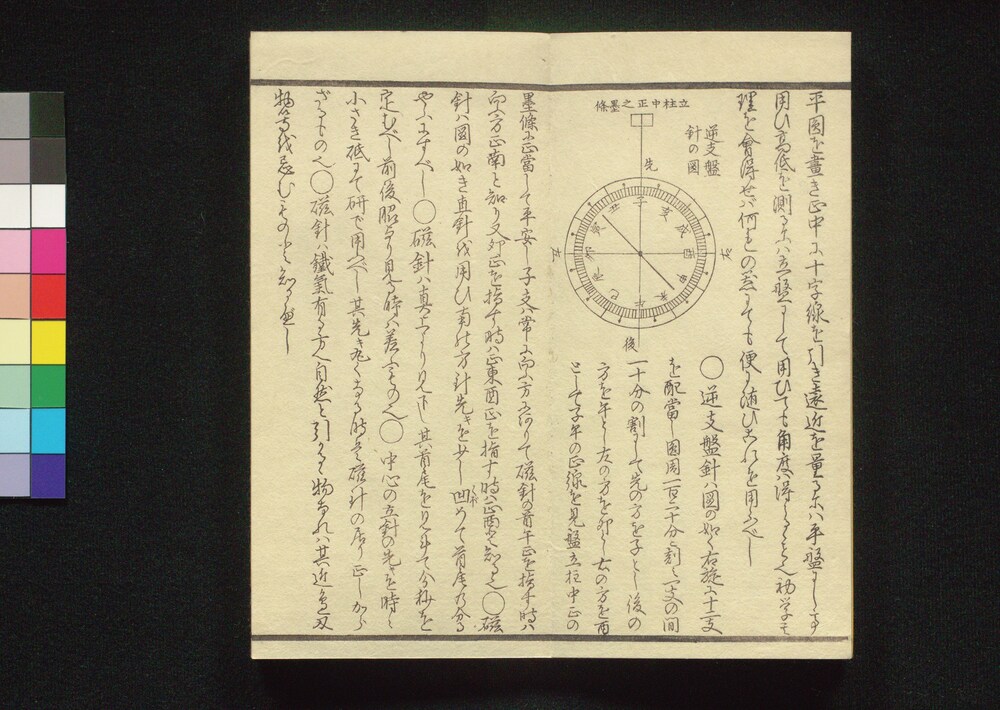 平圓を畫き正中に十字線を引き遠近を量るには平盤にします
用ひ高低を測るには立盤にして用ひても角度は得らるゝ也初学も
理を會得せば何をの器にても便に随ひこれを用ふべし
立柱中正之墨條
逆支盤
針の圖
先
後
左
右
子
亥
戌
酉
申
未
午
巳
辰
卯
寅
丑
◯逆支盤針ハ圖の如く右旋に十二支
を配當し圓周一百二十分に刻し一支の間
一十分の割にして先の方を子とし後の
方を午とし左の方を卯とし右の方を酉
として子午の正線を見盤立柱中正の
墨條に正當して平安し子支ハ常に向ふ方に有りて磁針の首午正を指す時ハ
向ふ方正南と知り又卯正を指す時ハ正東酉正を指す時ハ正西と知る也◯磁
針ハ圖の如き真針を用ひ南の方針先きを少し凹めて首尾の分る
やふにすべし◯磁針ハ真上より見下し其首尾を見平て分極を
定むべし前後照より見る時ハ差ふもの也◯中心の立針の先を時々
小さき砥にて研て用ふべし其先き丸くなる時は磁針の居り正しから
ざるもの也◯磁針ハ鐵氣有る方へ自然と引るゝ物なれハ其近邊刃
物等を忌むものと知るべし